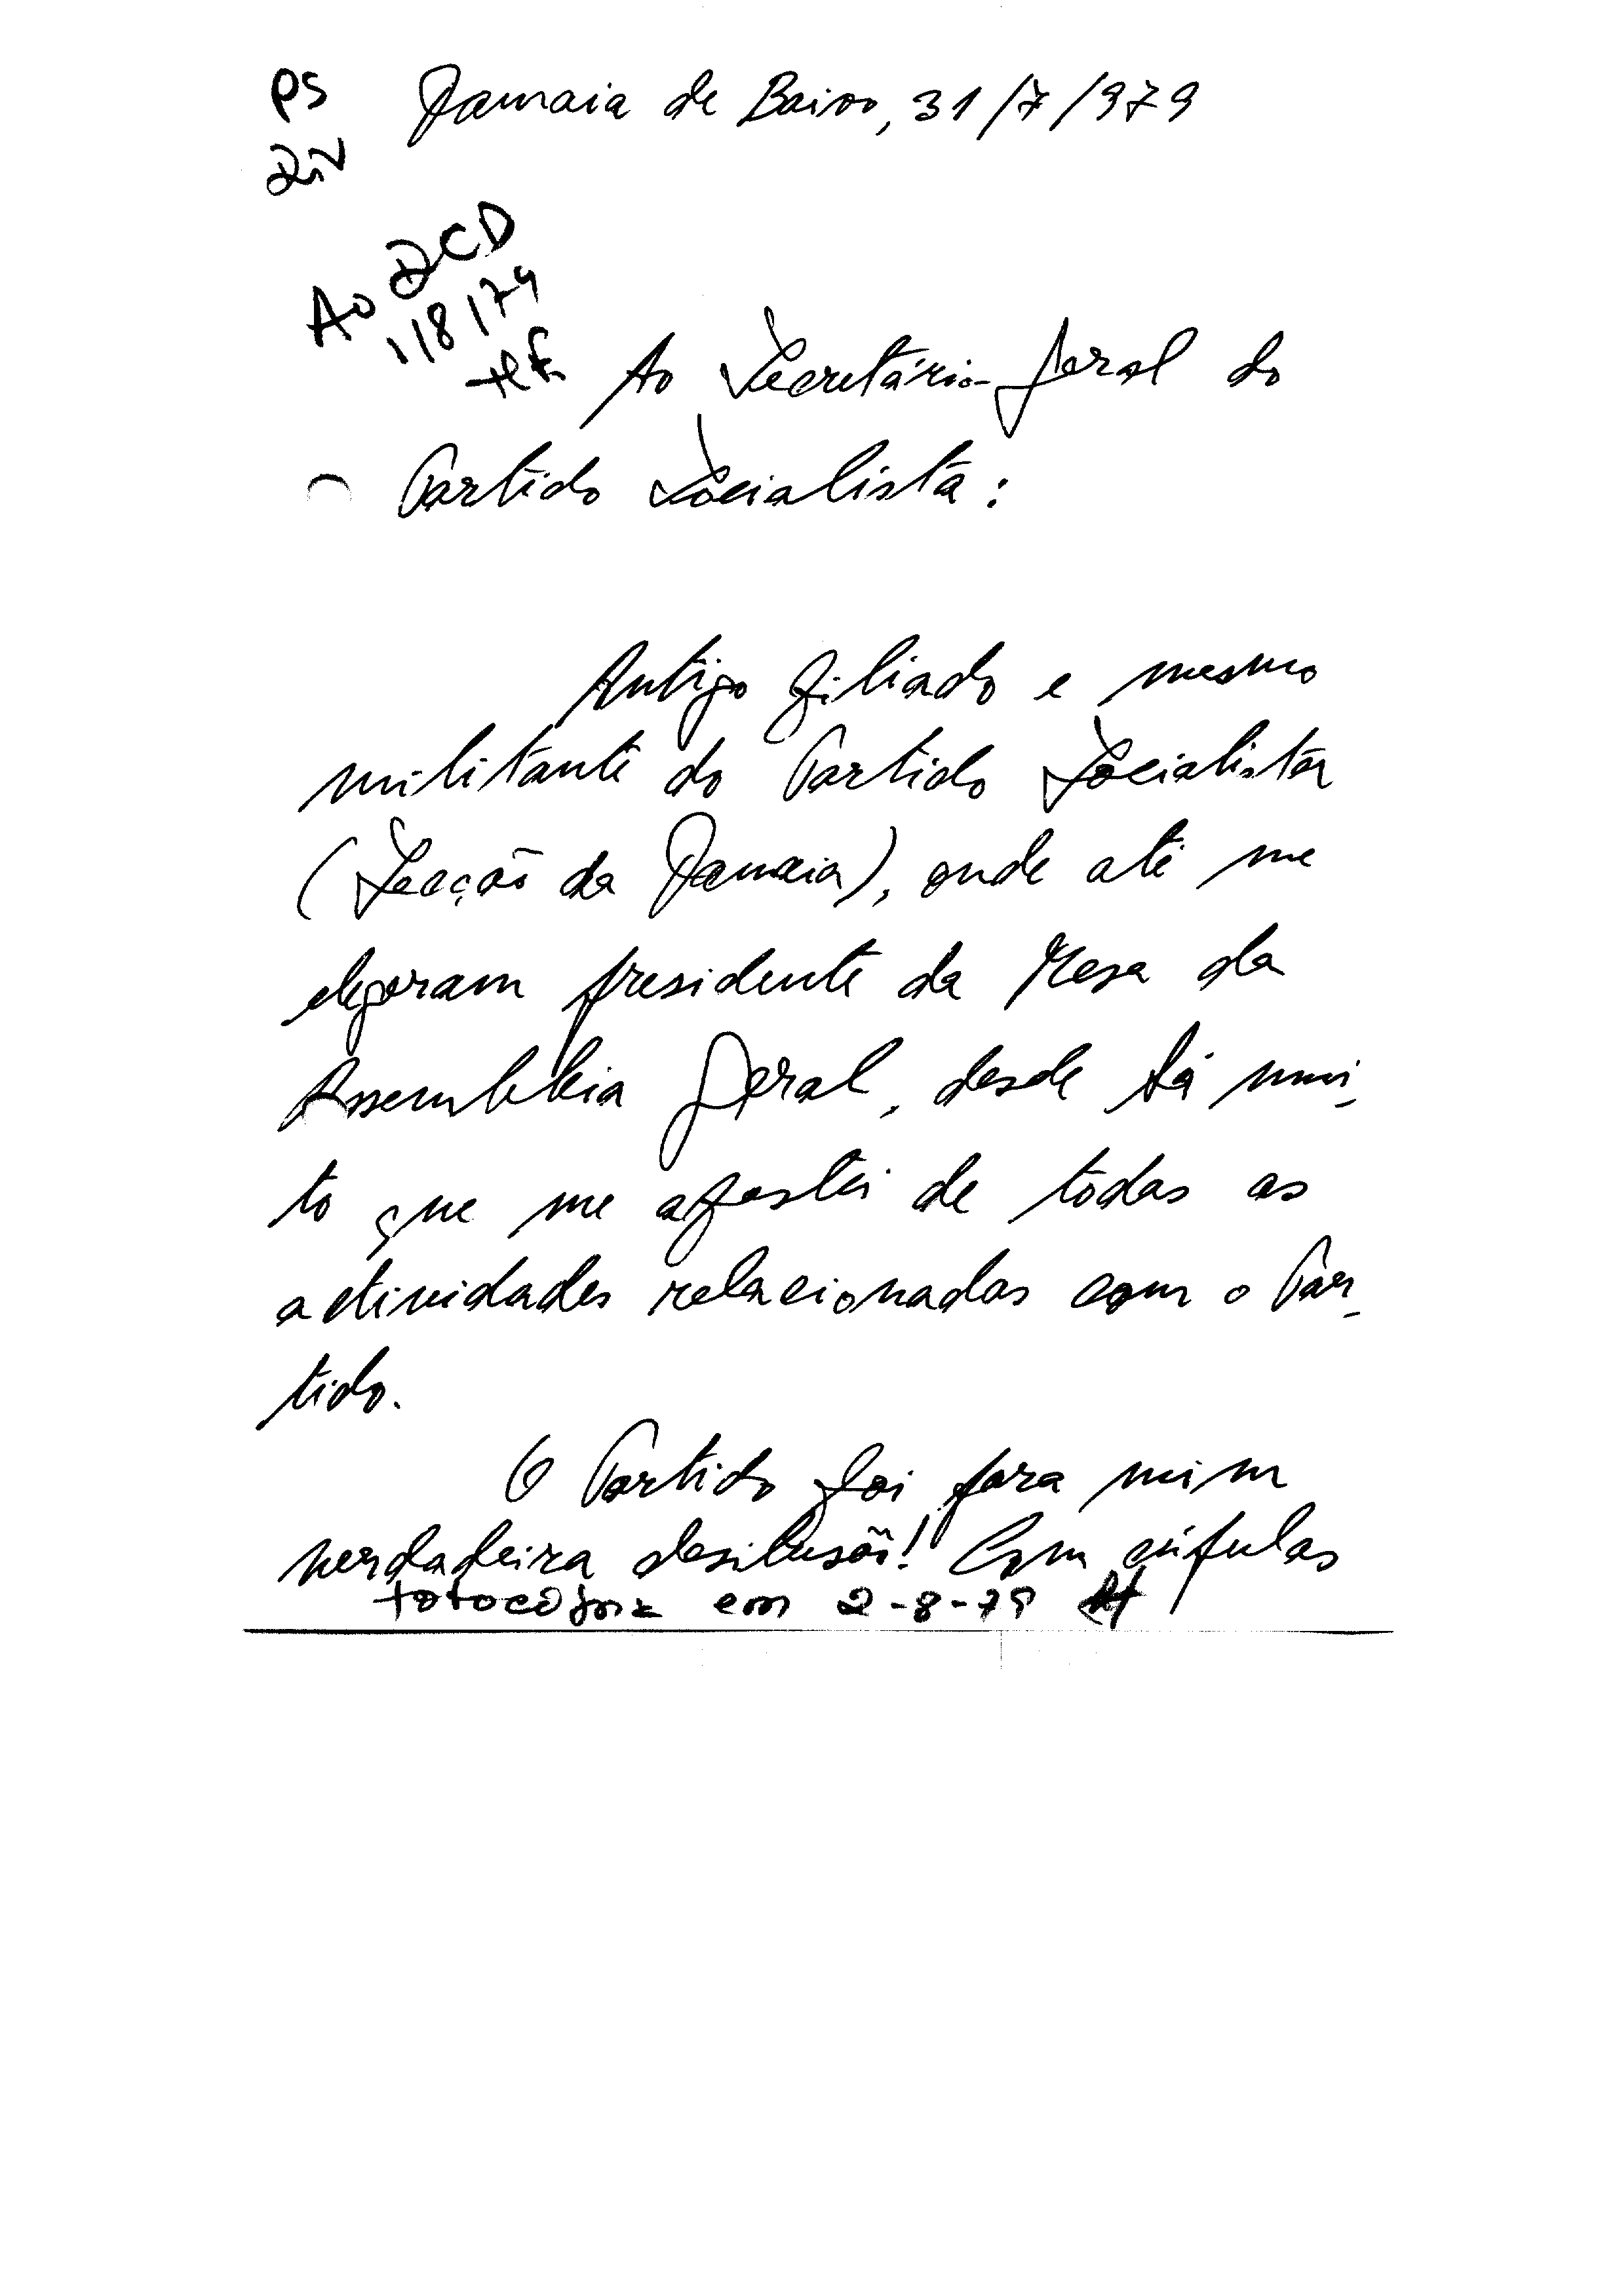 PS
Damaia de Baixo, 31/7/979
Div
Ao DCD
1/8/79
Ao Secretário-Geral do
Partido Socialista:
Antigo filiado e mesmo
militante do Partido Socialista
(Secção da Damaia), onde até me
elegeram presidente da Mesa da
Assembleia Geral, desde há mui-
to que me afastei de todas as
actividades relacionadas com o Par-
tido.
O Partido foi para mim
verdadeira desilusão! Com cúpulas
fotocópia em 2-8-79